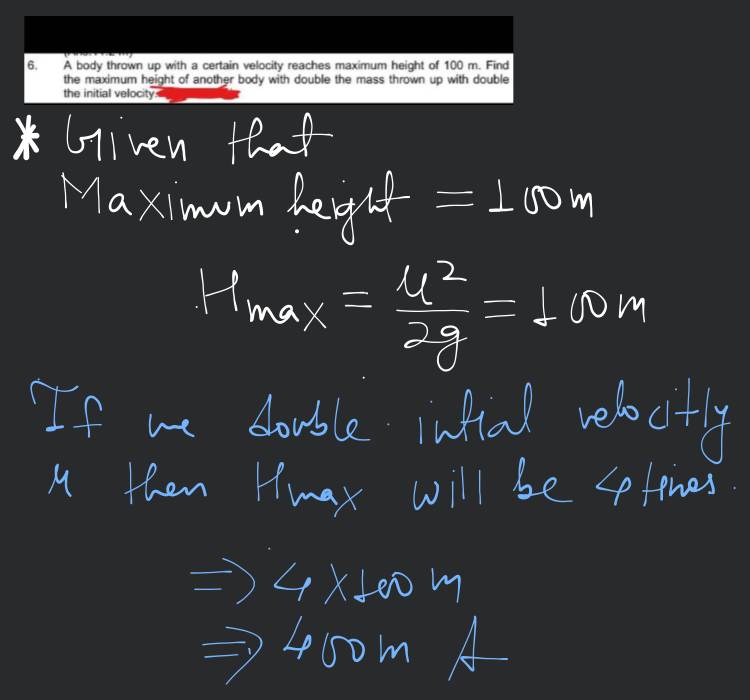 6. A body thrown up with a certain velocity reaches maximum height of 100 m. Find
the maximum height of another body with double the mass thrown up with double
the initial velocity.
* Given that
Maximum height = 100m
Hmax = u²/2g = 100m
If we double intial velocitly
u then Hmax will be 4 times.
=> 4 × 100 m
=> 400m A